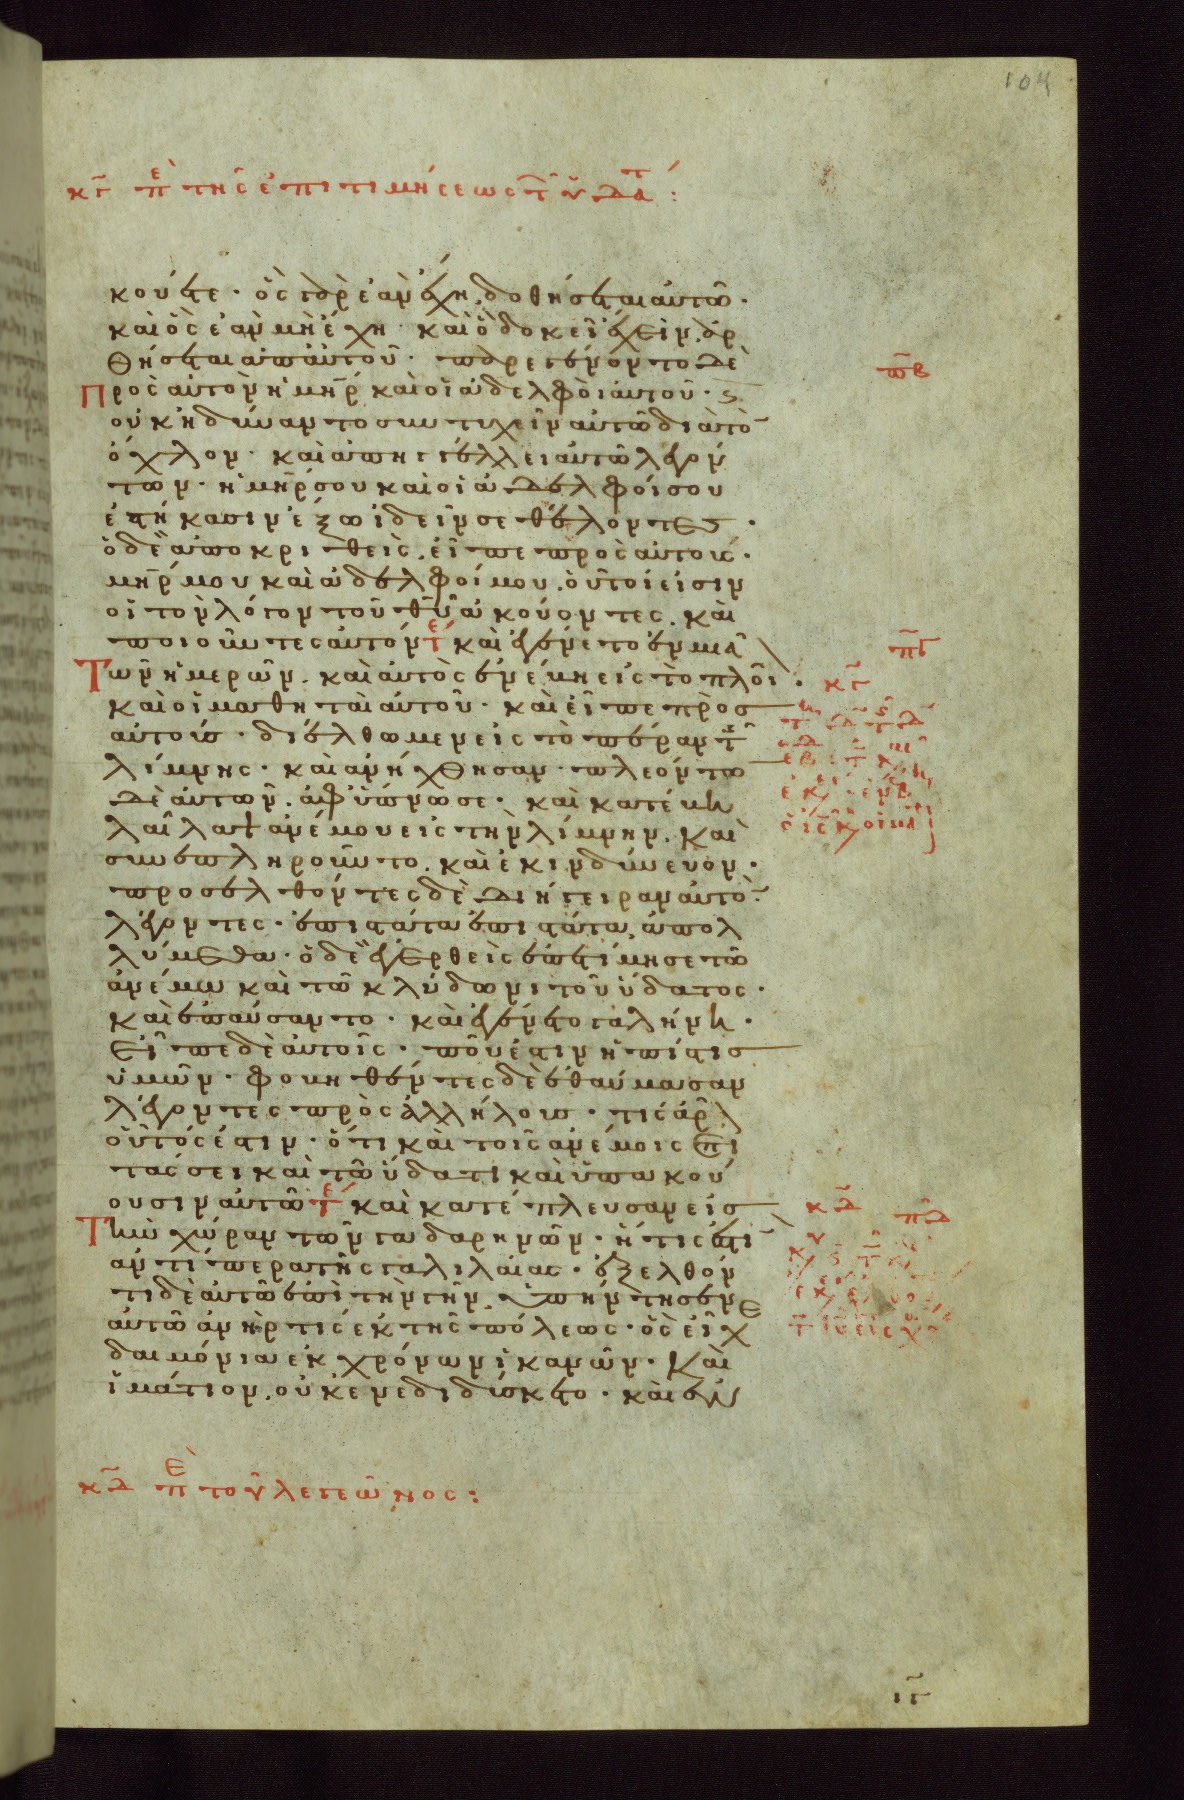 104
κγ πε της επιτιμήσεως τ υδα:
κούετε · ὃς γὰρ ἐὰν ἔχη, δοθήσεται αὐτῶ ·
καὶ ὃς ἐὰν μὴ ἔχη · καὶ ὃ δοκεῖ ἔχειν, ἀρ
θήσεται ἀπ αὐτοῦ · παρεγένοντο δὲ
πβ
Προς αὐτὸν ἡ μηρ καὶ οἱ ἀδελφοὶ αὐτοῦ ·
οὐκ ἠδύναντο συντυχεῖν αὐτῶ διὰ τὸ
ὄχλον · καὶ ἀπηγγέλλει αὐτῶ λέγον
των · ἡ μηρ σου καὶ οἱ ἀδελφοί σου
ἑστήκασιν ἔξω ἰδεῖν σε θέλοντες ·
ὁ δὲ ἀποκριθεὶς, εἶπε πρὸς αὐτούς ·
μηρ μου καὶ ἀδελφοί μου, οὗτοί εἰσιν
οἱ τὸν λόγον τοῦ θυ ἀκούοντες, καὶ
ποιοῦντες αὐτόν τε καὶ ἐγένετο ἐν μιᾶ
πγ
Τῶν ἡμερῶν, καὶ αὐτὸς ἐνέμη εἰς τὸ πλοῖ ·
κγ
καὶ οἱ μαθηταὶ αὐτοῦ · καὶ εἶπε πρὸς
αὐτούς · διέλθωμεν εἰς τὸ πέραν τ
λίμνης · καὶ ἀνήχθησαν · πλεόντω
δὲ αὐτῶν, ἀφύπνωσε · καὶ κατέβη
λαῖλαψ ἀνέμου εἰς τὴν λίμνην, καὶ
συνεπληροῦντο, καὶ ἐκινδύνευον ·
προσελθόντες δὲ διήγειραν αὐτὸ ·
λέγοντες · ἐπιστάτα ἐπιστάτα, ἀπολ
λύμεθα · ὁ δὲ ἐγερθεὶς ἐπετίμησε τῶ
ἀνέμω καὶ τῶ κλύδωνι τοῦ ὕδατος ·
καὶ ἐπαύσαντο · καὶ ἐγένετο γαλήνη ·
Εἶπε δὲ αὐτοῖς · ποῦ ἐστιν ἡ πίστις
ὑμῶν · φοβηθέντες δὲ ἐθαύμασαν
λέγοντες πρὸς ἀλλήλους · τίς ἄρ
οὗτός ἐστιν · ὅτι καὶ τοῖς ἀνέμοις ἐπι
τάσσει καὶ τῶ ὕδατι καὶ ὑπακού
ουσιν αὐτῶ τε καὶ κατέπλευσαν εἰς
κδ πδ
Τὴν χώραν τῶν γαδαρηνῶν · ἥτις ἐστὶ
ἀντίπερα τῆς γαλιλαίας · ἐξελθόν
τι δὲ αὐτῶ ἐπὶ τὴν γῆν, ὑπήντησεν
αὐτῶ ἀνήρ τις ἐκ τῆς πόλεως · ὃς εἶχε
δαιμόνια ἐκ χρόνων ἱκανῶν · καὶ
ἱμάτιον, οὐκ ἐνεδιδύσκετο · καὶ ἐν
κδ πε τοῦ λεγεῶνος:
ιγ